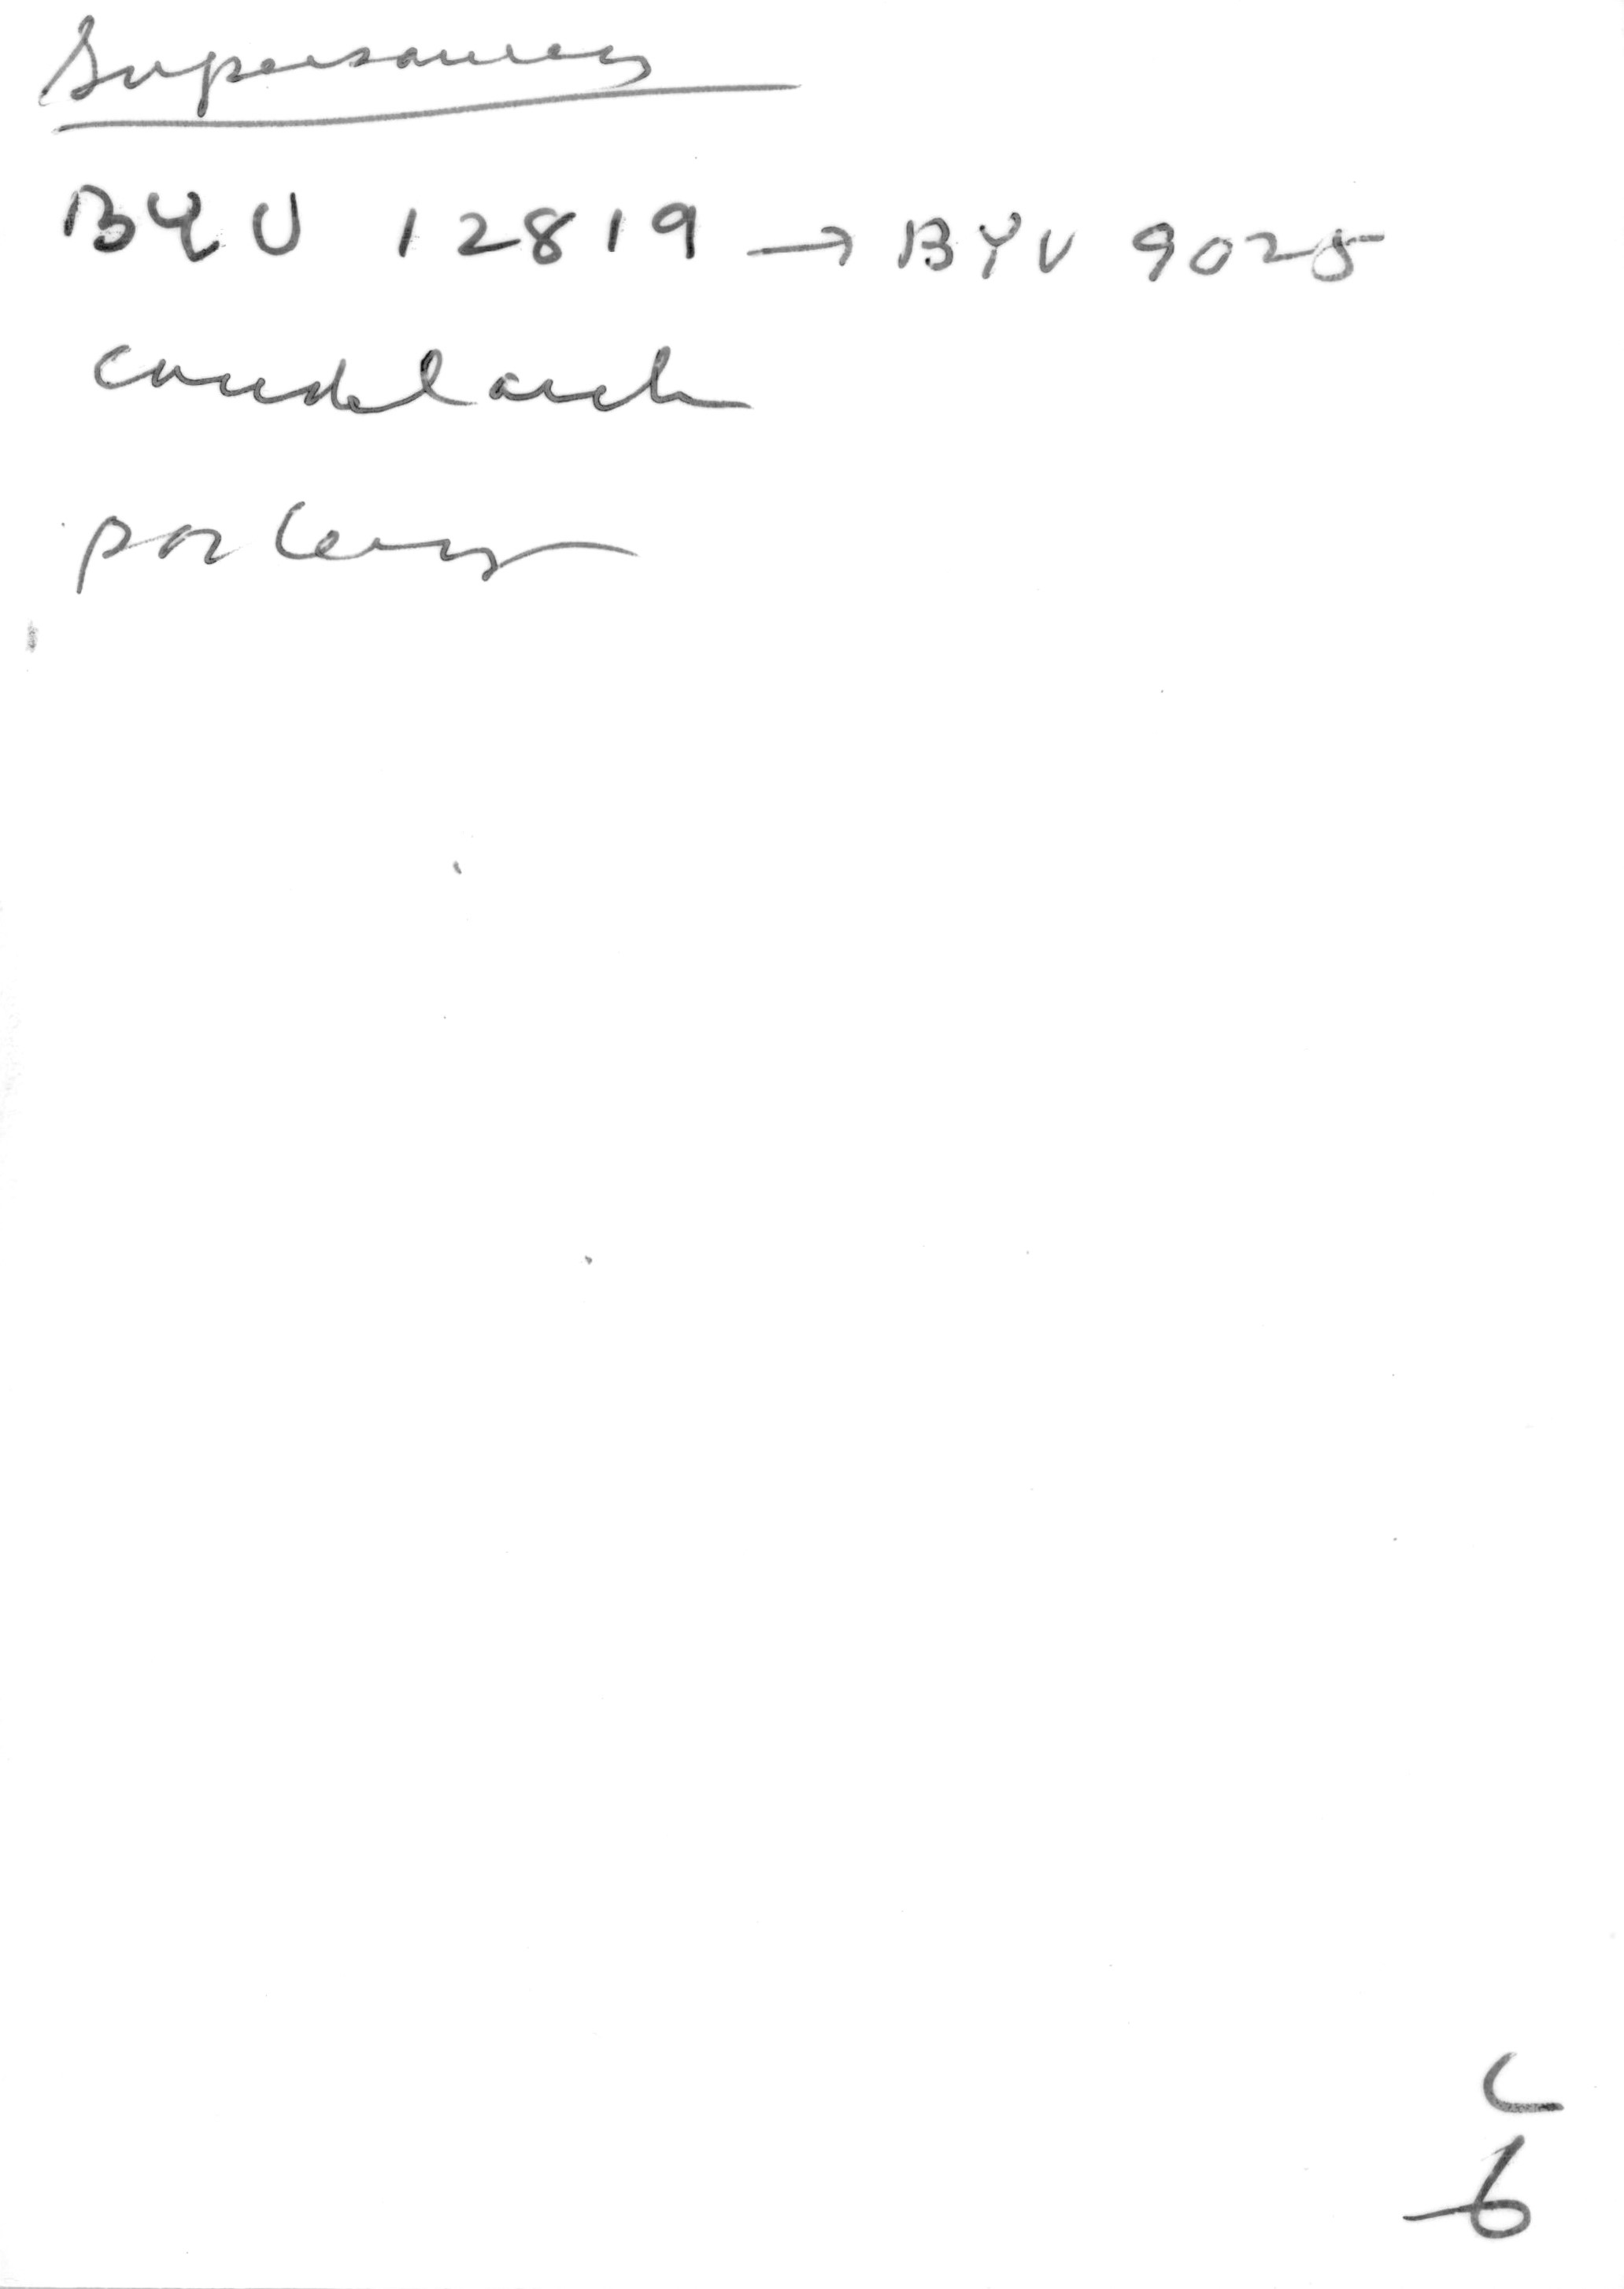 Supersaurus
BYU 12819 → BYU 9025
caudal arch
C
6